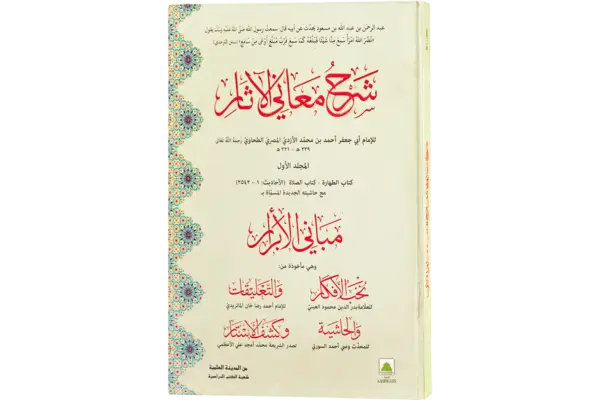 عبد الرحمن بن عبد الله بن مسعود يحدّث عن أبيه قال: سمعت رسول الله صلى الله عليه وسلم يقول
نضّر الله امرأ سمع منّا شيئًا فبلّغه كما سمع فربّ مبلّغ أوعى من سامع (سنن الترمذي)
شرح معاني الآثار
للإمام أبي جعفر أحمد بن محمّد الأزديّ المصريّ الطحاويّ رحمة الله تعالى
٢٣٩ هـ - ٣٢١ هـ
المجلّد الأوّل
كتاب الطهارة - كتاب الصلاة (الأحاديث: ١ - ٢٥٤٣)
مع حاشيته الجديدة المسمّاة بـ
مباني الأبرار
وهي مأخوذة من:
نخب الأفكار والتعليقات
للعلامة بدر الدين محمود العينيّ للإمام أحمد رضا خان الماتريديّ
والحاشية وكشف الأستار
للمحدّث وصي أحمد السورتي لصدر الشريعة محمّد أمجد علي الأعظمي
من المدينة العلمية
شعبة الكتب الدراسية